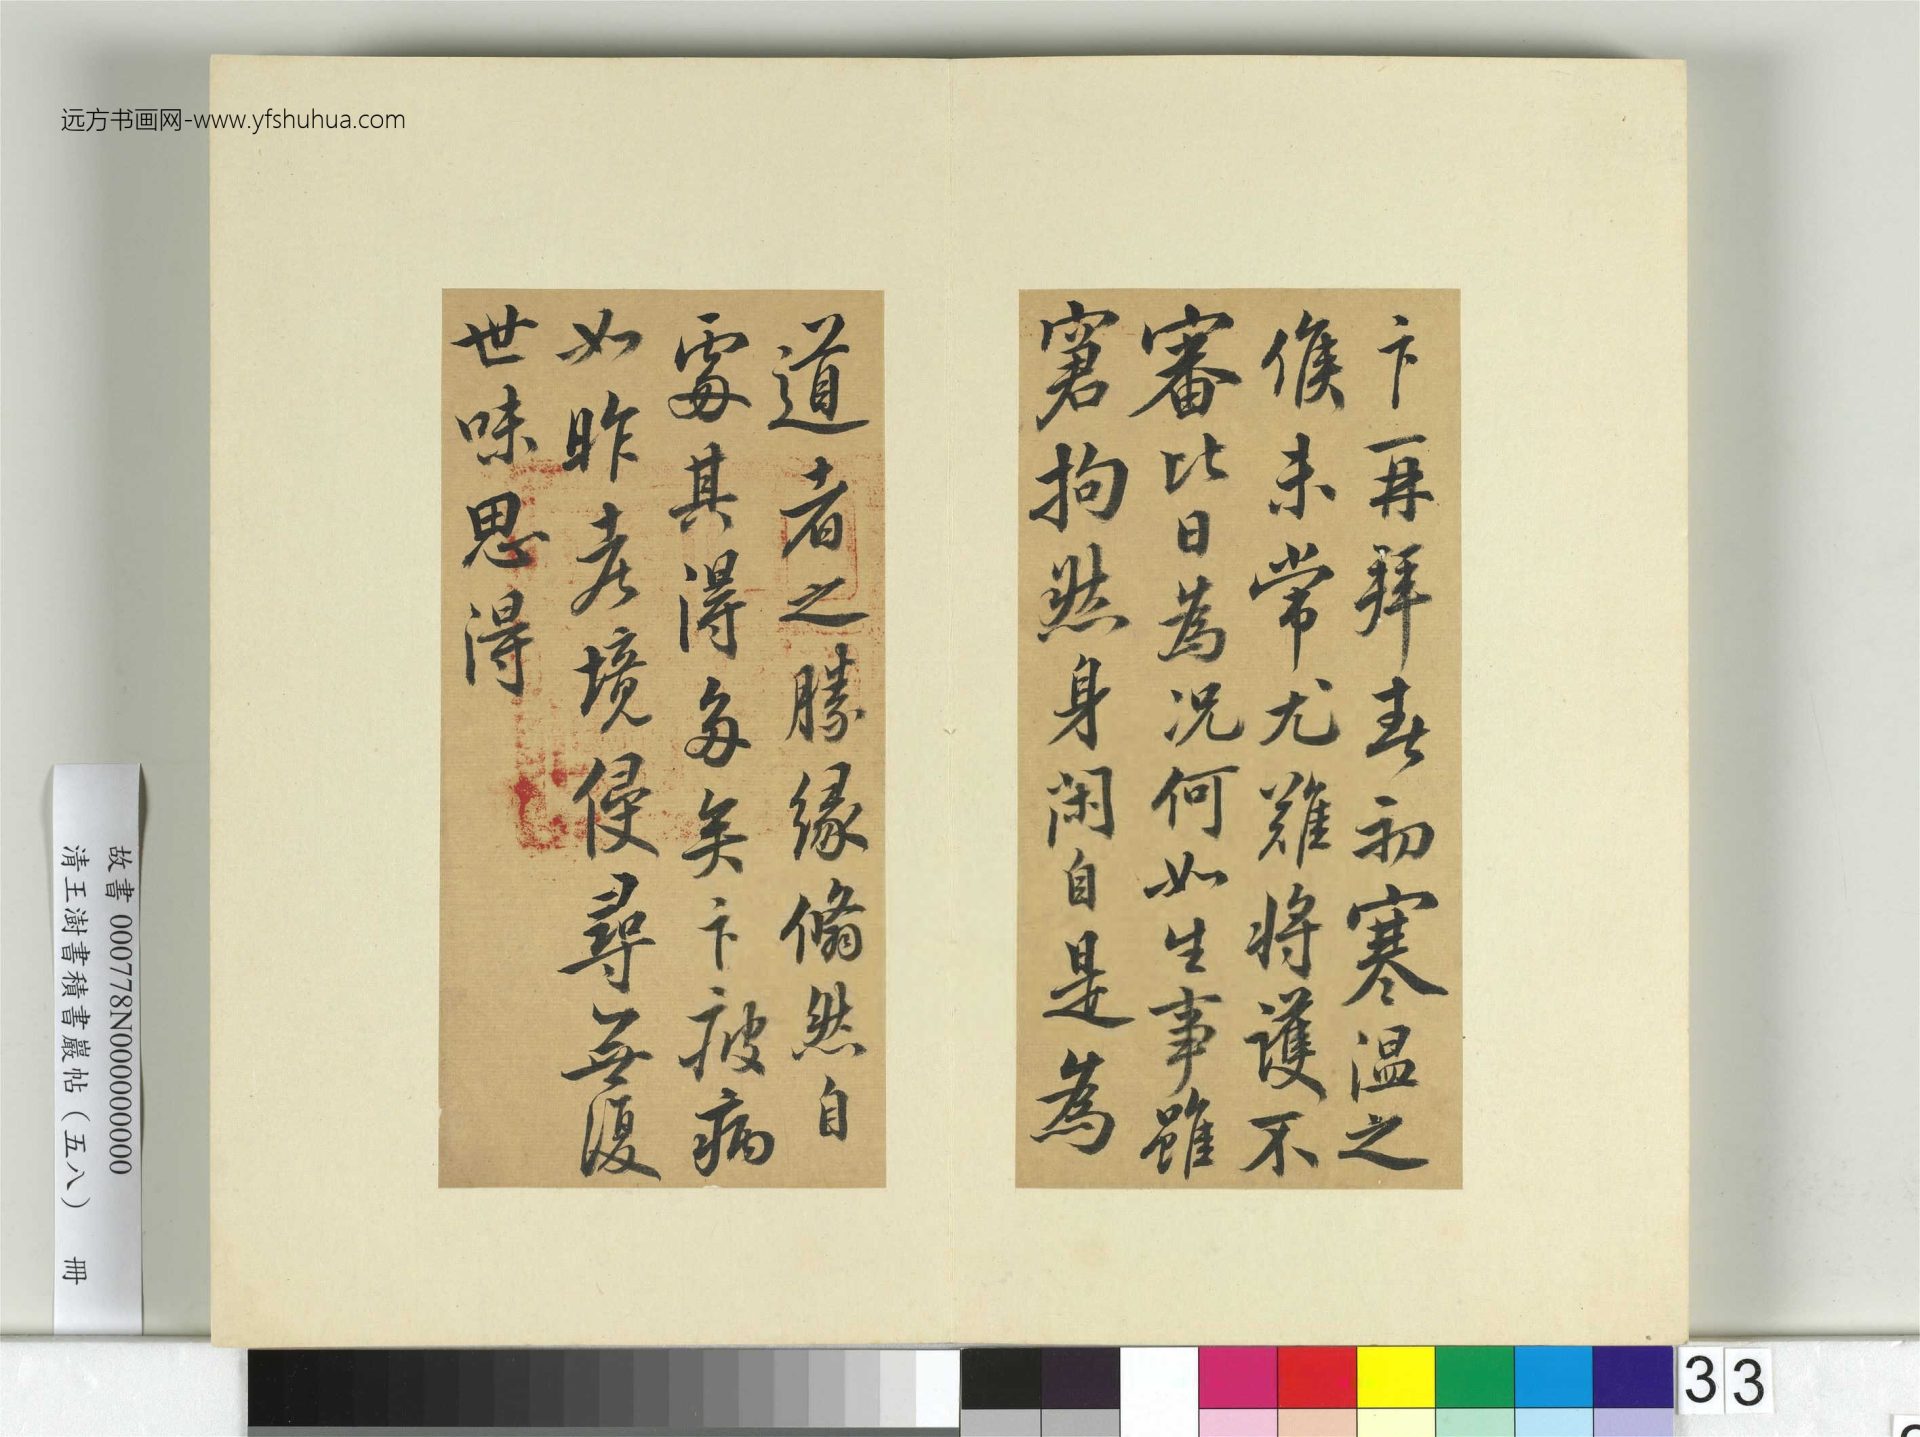 远方书画网-www.yfshuhua.com
卞再拜春初寒温之
候未常尤難将護不
審比日為况何如生事雖
窘拘然身闲自是為
道者之勝缘翛然自
處其淂多矣卞疲病
如昨老境侵尋無復
世味思淂
故書 000778N000000000
清王澍書積書巖帖（五八） 冊
33